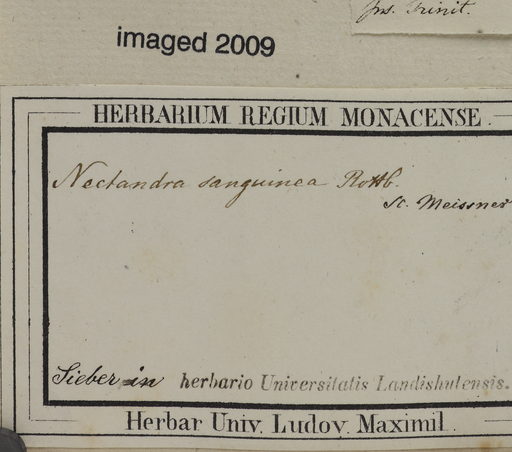 ins. Trinit.
imaged 2009
HERBARIUM REGIUM MONACENSE.
Nectandra sanguinea Rottb.
sc. Meissner
Sieber in herbario Universitatis Landishutensis.
Herbar Univ. Ludov. Maximil.